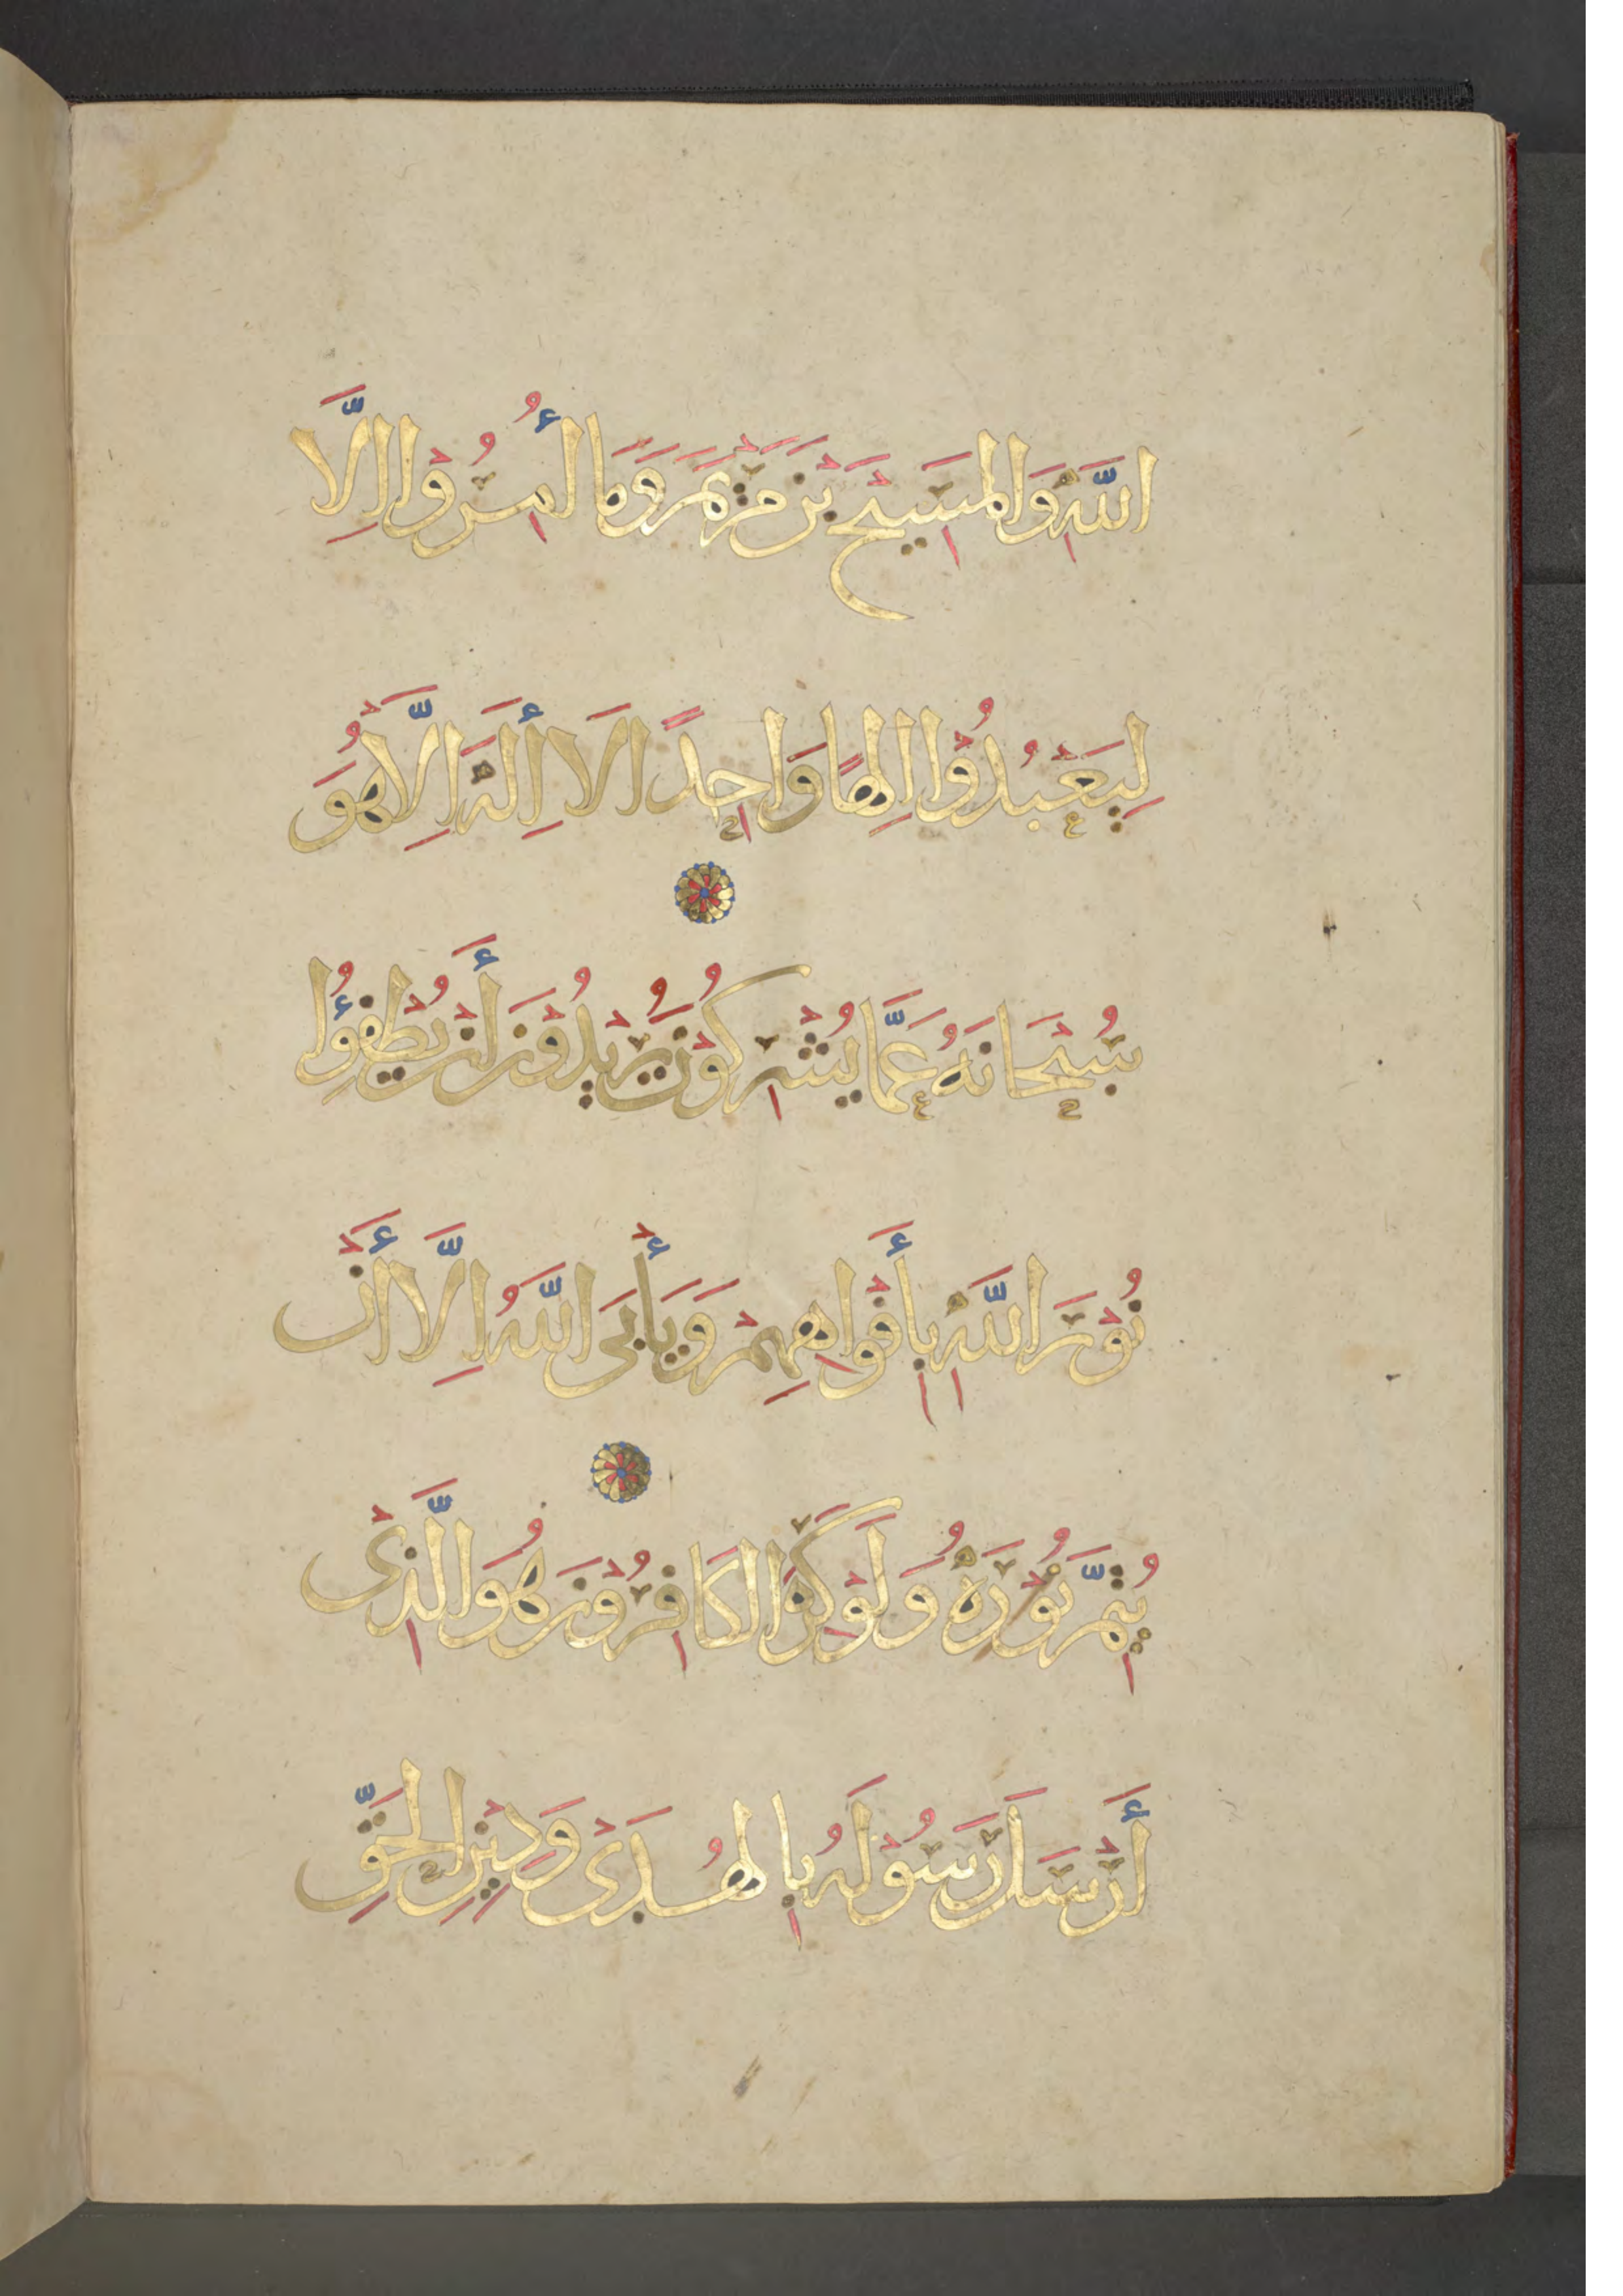 اللَّهِ وَالْمَسِيْحَ بْنَ مَرْيَمَ وَمَا أُمِرُوْا اِلَّا
لِيَعْبُدُوْا اِلٰهًا وَاحِدًا لَا إِلَهَ اِلَّا هُوَ
سُبْحَانَهُ عَمَّا يُشْرِكُوْنَ يُرِيْدُوْنَ أَنْ يُطْفِؤُا
نُوْرَ اللَّهِ بِأَفْوَاهِهِمْ وَيَأْبَى اللَّهُ اِلَّا أَنْ
يُتِمَّ نُوْرَهُ وَلَوْ كَرِهَ الْكَافِرُوْنَ هُوَ الَّذِىْ
أَرْسَلَ رَسُوْلَهُ بِالْهُدَىْ وَدِيْنِ الْحَقِّ